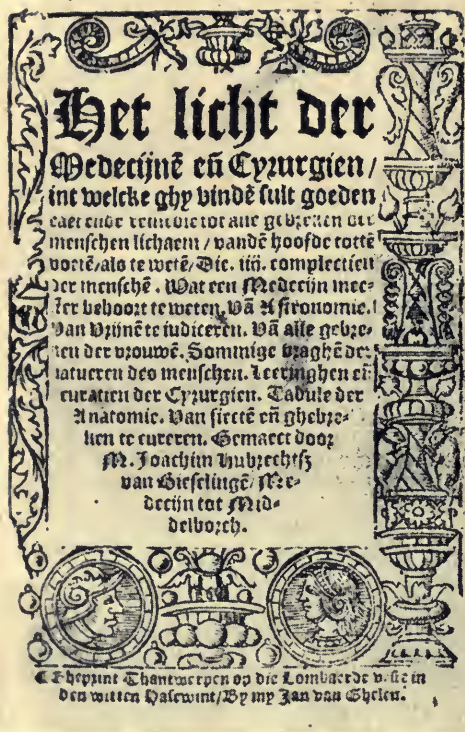 Het licht der
Medecijnē en̄ Cyrurgien /
int welcke ghy vindē sult goeden
raet ende remedie tot alle gebreken der
menschen lichaem / vandē hoofde tottē
voetē / als te wetē / Die. iiij. complectien
der menschē. Wat een Medecijn mees-
ter behoort te weten. Vā Astronomie.
Van Vrijnē te iudicerēn. Vā alle gebre-
ken der vrouwē. Sommige vraghē der
natueren des menschen. Leeringhen en̄
curatien der Cyrurgien. Tabule der
Anatomie. Van siectē en̄ ghebre-
ken te cureren. Gemaect door
M. Joachim Hubrechtsz
van Giesslingē / Me-
decijn tot Mid-
delborch.
Gheprint Thantwerpen op die Lombaerde veste in
den witten Hasewint / By my Jan van Ghelen.